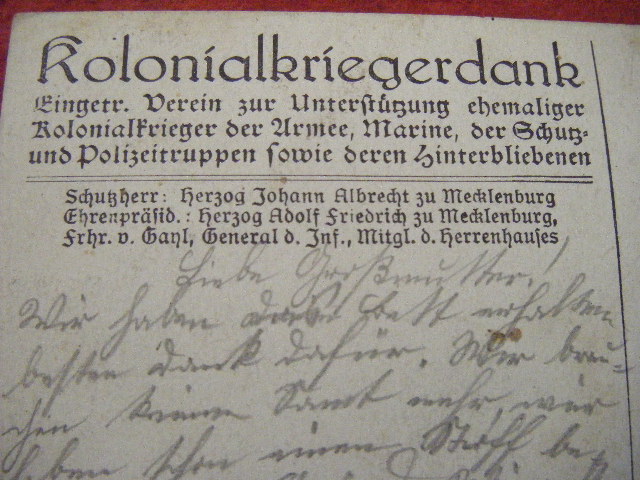 Kolonialkriegerdank
Eingetr. Verein zur Unterstützung ehemaliger
Kolonialkrieger der Armee, Marine, der Schutz-
und Polizeitruppen sowie deren Hinterbliebenen
Schutzherr: Herzog Johann Albrecht zu Mecklenburg
Ehrenpräsid.: Herzog Adolf Friedrich zu Mecklenburg,
Frhr. v. Gayl, General d. Inf., Mitgl. d. Herrenhauses
Liebe Großmutter!
Wir haben das erhalten
besten Dank dafür. Wir brau-
chen keinen Samt mehr, wir
haben schon einen Stoff be-